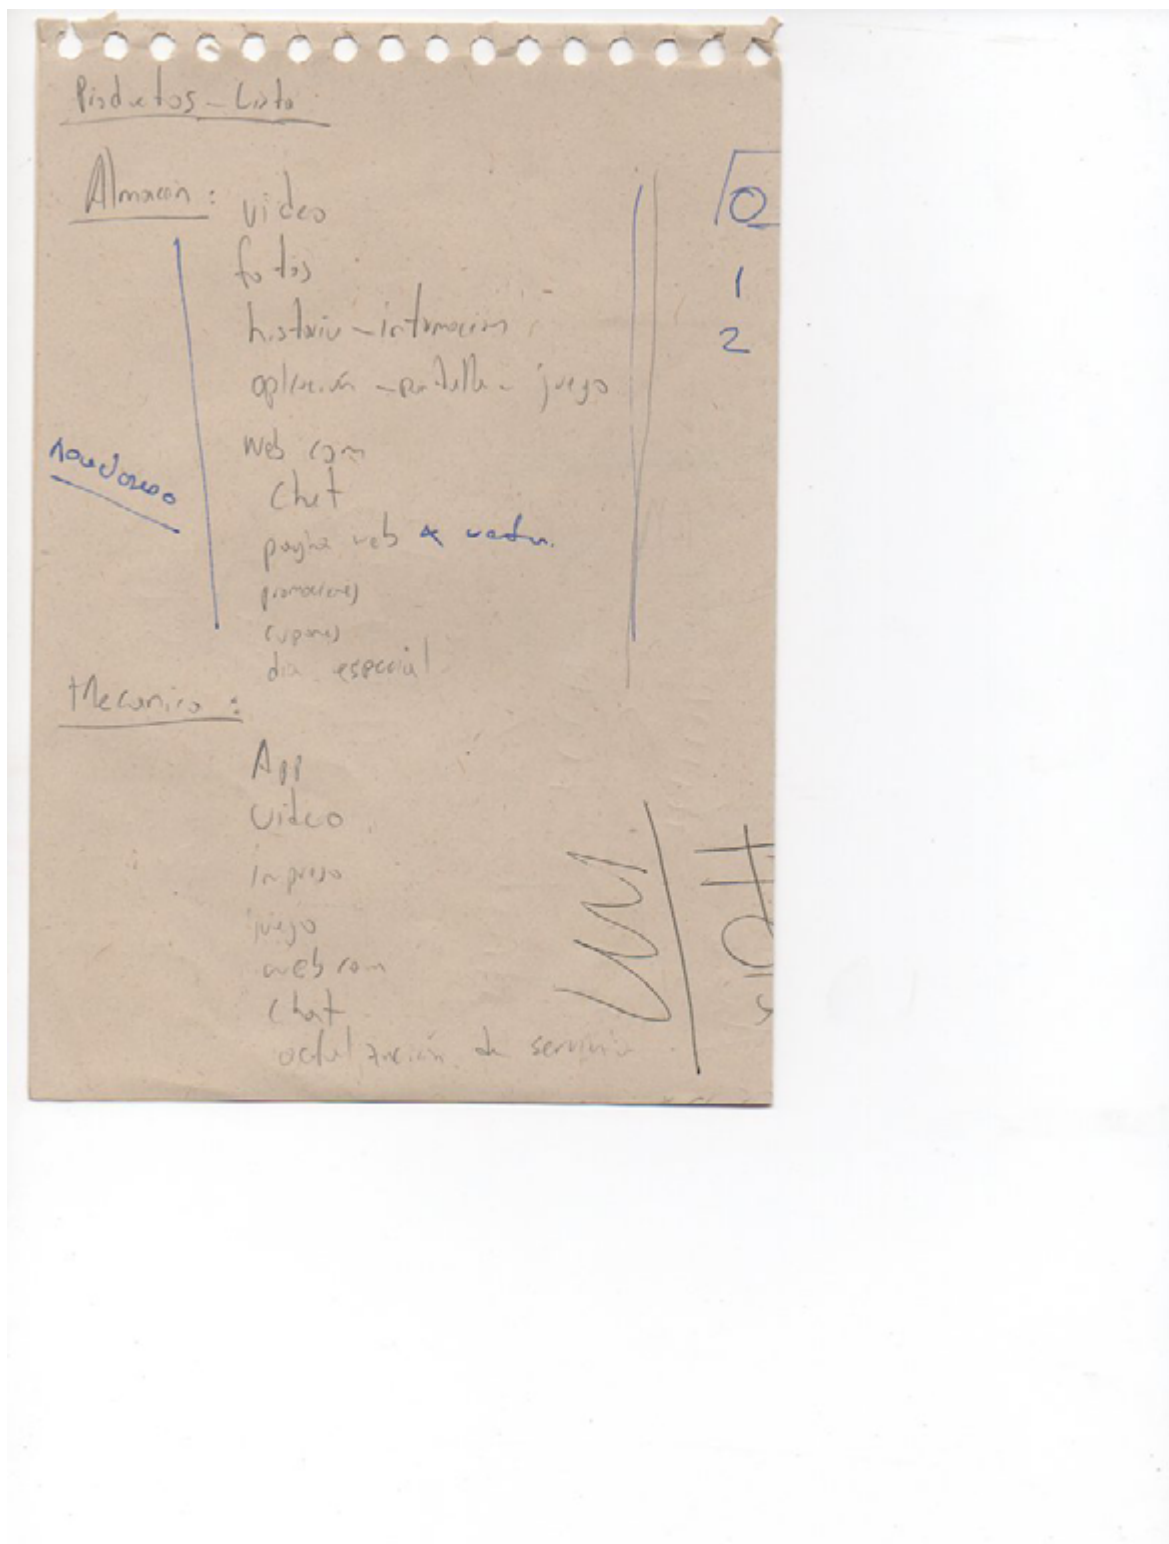 Productos - Lista
Almacén :
video
fotos
historia - información
aplicación - pantalla - juego
web cam
chat
pagina web
promociones
cupones
dia especial
Mecanico :
App
video
impreso
juego
web cam
chat
actualización de servicio
0
1
2